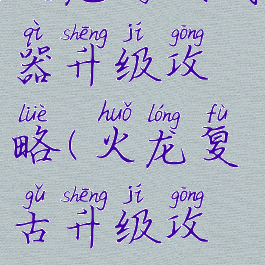 qì shēng jí gōng
器升级攻
lüè huǒ lóng fù
略(火龙复
gǔ shēng jí gōng
古升级攻